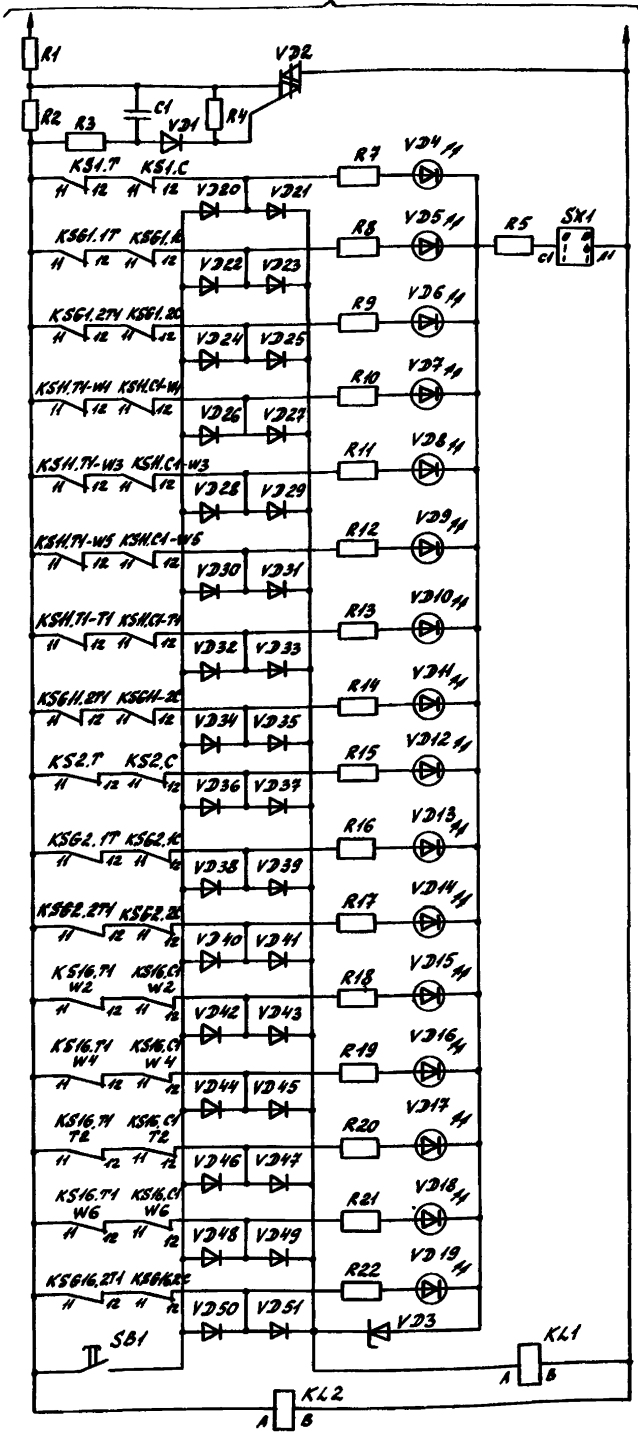 R1
VD2
R2
R3
C1
VD1
R4
KS1.T KS1.C
11 12 11 12
VD20 VD21
R7
VD4
R5
SX1
C1
A1
KSG1.1T
11 12 11 12
VD22 VD23
R8
VD5
KSG1.2T1 KSG1.2C
11 12 11 12
VD24 VD25
R9
VD6
KSH.T1-W1 KSH.C1-W1
11 12 11 12
VD26 VD27
R10
VD7
KSH.T1-W3 KSH.C1-W3
11 12 11 12
VD28 VD29
R11
VD8
KSH.T1-W5 KSH.C1-W5
11 12 11 12
VD30 VD31
R12
VD9
KSH.T1-T1 KSH.C1-T1
11 12 11 12
VD32 VD33
R13
VD10
KSGH.2T1 KSGH-2C
11 12 11 12
VD34 VD35
R14
VD11
KS2.T KS2.C
11 12 11 12
VD36 VD37
R15
VD12
KSG2.1T KSG2.1C
11 12 11 12
VD38 VD39
R16
VD13
KSG2.2T1 KSG2.2C
11 12 11 12
VD40 VD41
R17
VD14
KS16.T1 KS16.C1
W2 W2
11 12 11 12
VD42 VD43
R18
VD15
KS16.T1 KS16.C1
W4 W4
11 12 11 12
VD44 VD45
R19
VD16
KS16.T1 KS16.C1
T2 T2
11 12 11 12
VD46 VD47
R20
VD17
KS16.T1 KS16.C1
W6 W6
11 12 11 12
VD48 VD49
R21
VD18
KSG16.2T1 KSG16.2C
11 12 11 12
VD50 VD51
R22
VD19
VD3
SB1
KL1
A B
KL2
A B